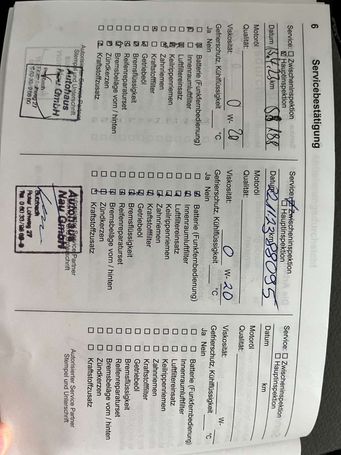 6
Servicebestätigung
Service: ☐ Zwischeninspektion
☒ Hauptinspektion
Datum
km
Motoröl
Qualität:
Viskosität: 0 W- 20
Gefrierschutz, Kühlflüssigkeit °C
Ja Nein
Batterie (Funkfernbedienung)
Innenraumluftfilter
Luftfiltereinsatz
Keilrippenriemen
Zahnriemen
Kraftstofffilter
Getriebeöl
Bremsflüssigkeit
Reifenreparaturset
Bremsbeläge vorn / hinten
Zündkerzen
Kraftstoffzusatz
Autorisierter Service Partner
Stempel und Unterschrift
Autohaus
GmbH
Service: Zwischeninspektion
☐ Hauptinspektion
Datum
Motoröl
Qualität:
Viskosität: 0 W- 20
Gefrierschutz, Kühlflüssigkeit °C
Ja Nein
Batterie (Funkfernbedienung)
Innenraumluftfilter
Luftfiltereinsatz
Keilrippenriemen
Zahnriemen
Kraftstofffilter
Getriebeöl
Bremsflüssigkeit
Reifenreparaturset
Bremsbeläge vorn / hinten
Zündkerzen
Kraftstoffzusatz
Autohaus
GmbH
Service: ☐ Zwischeninspektion
☐ Hauptinspektion
Datum km
Motoröl
Qualität:
Viskosität: W-
Gefrierschutz, Kühlflüssigkeit °C
Ja Nein
☐ ☐ Batterie (Funkfernbedienung)
☐ ☐ Innenraumluftfilter
☐ ☐ Luftfiltereinsatz
☐ ☐ Keilrippenriemen
☐ ☐ Zahnriemen
☐ ☐ Kraftstofffilter
☐ ☐ Getriebeöl
☐ ☐ Bremsflüssigkeit
☐ ☐ Reifenreparaturset
☐ ☐ Bremsbeläge vorn / hinten
☐ ☐ Zündkerzen
☐ ☐ Kraftstoffzusatz
Autorisierter Service Partner
Stempel und Unterschrift